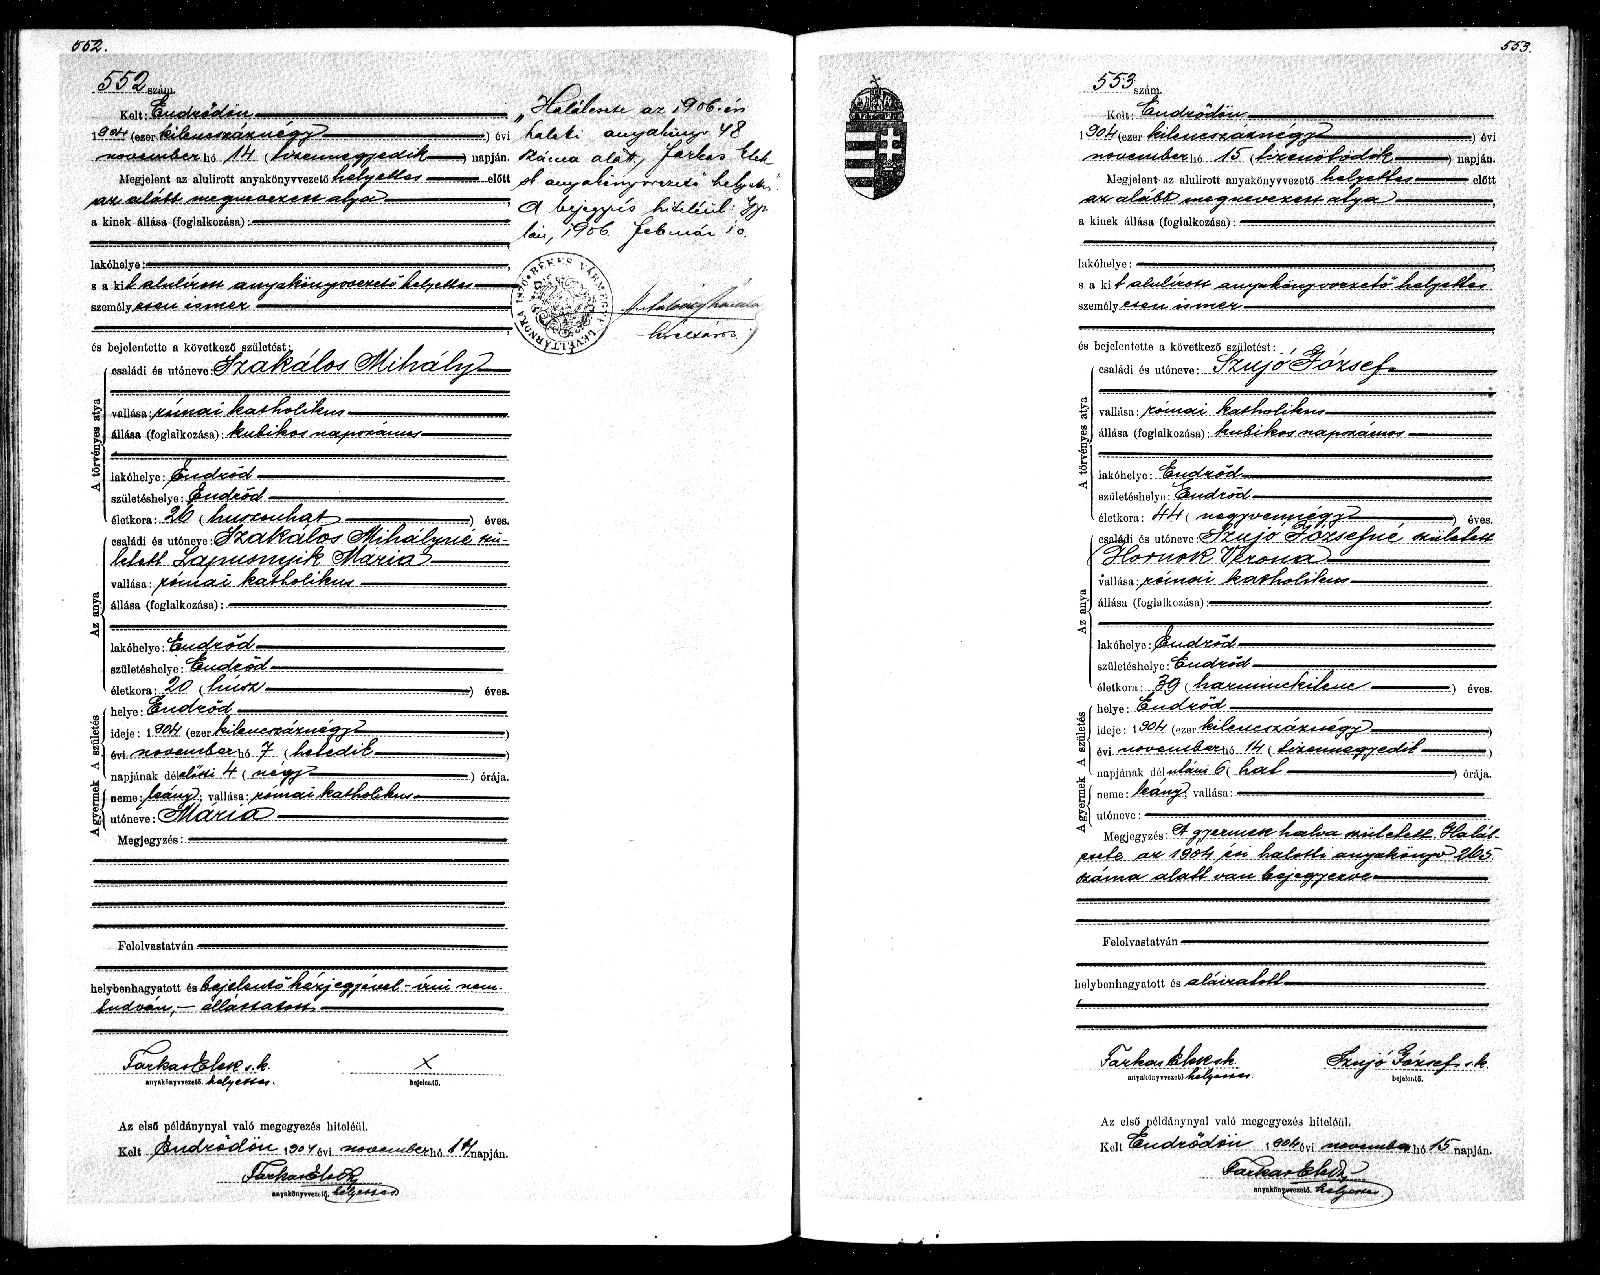 552.
552 szám.
Kelt: Endrődön
1904 (ezer kilenczszáznégy) évi
november hó 14 (tizennegyedik) napján.
Megjelent az alulirott anyakönyvvezető helyettes előtt
az alább megnevezett atya
a kinek állása (foglalkozása):
lakóhelye:
s a kit alulírott anyakönyvvezető helyettes
személyesen ismer
és bejelentette a következő születést:
A törvényes atya
családi és utóneve: Szakálos Mihály
vallása: római katholikus
állása (foglalkozása): kubikos napszámos
lakóhelye: Endrőd
születéshelye: Endrőd
életkora: 26 (huszonhat) éves.
Az anya
családi és utóneve: Szakálos Mihályné szü-
letett Lapusnyik Mária
vallása: római katholikus
állása (foglalkozása):
lakóhelye: Endrőd
születéshelye: Endrőd
életkora: 20 (húsz) éves.
A születés
helye: Endrőd
ideje: 1904 (ezer kilenczszáznégy
évi november hó 7 (hetedik)
napjának délelőtti 4 (négy) órája.
A gyermek
neme: leány; vallása: római katholikus
utóneve: Mária
Megjegyzés:
Felolvastatván
helybenhagyatott és bejelentő kézjegyével - írni nem
tudván, - elláttatott
Farkas Elek s. k. x
anyakönyvvezető helyettes. bejelentő.
Az első példánynyal való megegyezés hiteléül.
Kelt Endrődön 1904 évi november hó 14 napján.
Farkas Elek
anyakönyvvezető. helyettes
„Halálesete az 1906. évi
haloti anyakönyv 48
száma alatt, Farkas Elek
st anyakönyvvezető helyett.
A bejegyzés hiteléül: Gyu
lán, 1906. február 10.
BÉKÉS VÁRMEGYE LEVÉLTÁRNOKA 1876
553.
553 szám.
Kelt: Endrődön
1904 (ezer kilenczszáznégy) évi
november hó 15 (tizenötödik) napján.
Megjelent az alulirott anyakönyvvezető helyettes előtt
az alább megnevezett atya
a kinek állása (foglalkozása):
lakóhelye:
s a kit alulírott anyakönyvvezető helyettes
személyesen ismer
és bejelentette a következő születést:
A törvényes atya
családi és utóneve: Szujó József
vallása: római katholikus
állása (foglalkozása): kubikos napszámos
lakóhelye: Endrőd
születéshelye: Endrőd
életkora: 44 (negyvennégy) éves.
Az anya
családi és utóneve: Szujó Józsefné született
Hornok Verona
vallása: római katholikus
állása (foglalkozása):
lakóhelye: Endrőd
születéshelye: Endrőd
életkora: 39 (harminckilenc) éves.
A születés
helye: Endrőd
ideje: 1904 (ezer kilenczszáznégy)
évi november hó 14 (tizennegyedik)
napjának délutáni 6 (hat) órája.
A gyermek
neme: leány; vallása:
utóneve:
Megjegyzés: A gyermek halva született. Halál-
esete az 1904 évi halotti anyakönyv 265
száma alatt van bejegyezve
Felolvastatván
helybenhagyatott és aláiratott
Farkas Elek s.k. Szujó József s. k.
anyakönyvvezető. helyettes. bejelentő.
Az első példánynyal való megegyezés hiteléül.
Kelt Endrődön 1904 évi november hó 15 napján.
Farkas Elek
anyakönyvvezető. helyettes.